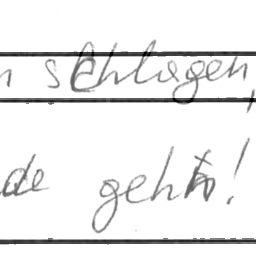 n schlagen,
de geht!